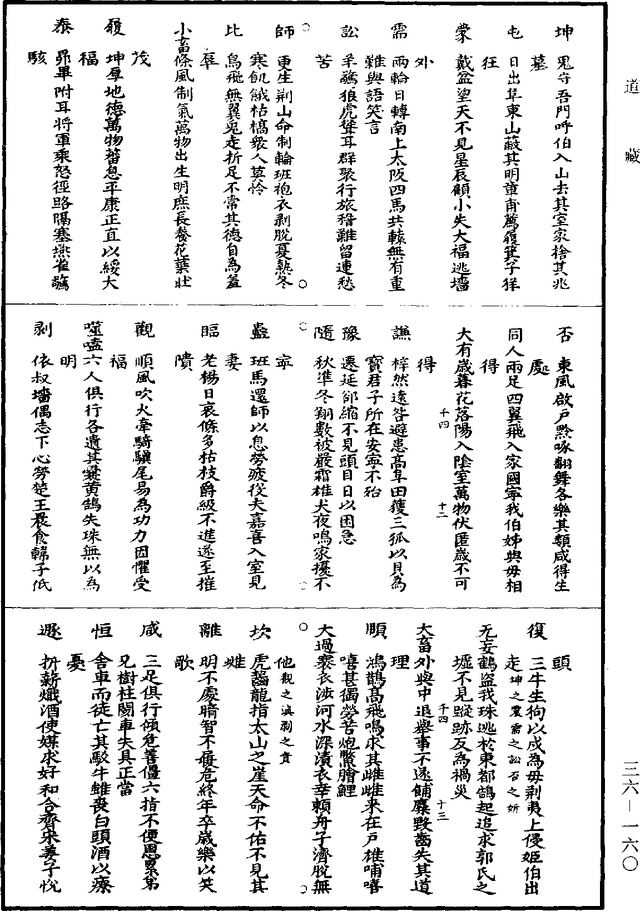 道藏
坤　鬼守吾門呼伯入山去其室家捨其兆
墓
屯　日出阜東山蔽其明章甫薦履箕子佯
狂
蒙　戴盆望天不見星辰顧小失大福逃墻
外
需　兩輪日轉南上太阪四馬共轅無有重
難與語笑言
訟　羊驚狼虎聳耳群聚行旅稽難留連愁
苦
師　更生荆山命制輪班袍衣剥脫夏熱冬
寒飢餓枯槁衆人莫怜
比　鳥飛無翼兔走折足不常其德自為羞
辱
小畜　條風制氣萬物出生明庶長養花葉壯
茂
履　坤厚地德萬物蕃息平康正直以綏大
福
泰　昴畢附耳將軍乘怒徑路隔塞燕雀驚
駭
否　東風啟戶黔啄翻舞各樂其類咸得生
處
同人　兩足四翼飛入家國寧我伯姊與母相
得
大有　歲暮花落陽入陰室萬物伏匿歲不可
得
十四
十二
謙　梓然遠咎避患高阜田獲三狐以貝為
寶君子所在安寧不殆
豫　遷延郤縮不見頭目日以困急
隨　秋凖冬翔數被嚴霜雄犬夜鳴家擾不
寧
蠱　班馬還師以息勞疲役夫嘉喜入室見
妻
臨　老楊日衰條多枯枝爵級不進遂至摧
隤
觀　順風吹火牽騎驥尾易為功力因懼受
福
噬嗑　六人俱行各遺其囊黄鵠失珠無以為
明
剥　依叔墻偶志下心勞楚王晨食韓子低
頭
復　三牛生狗以戌為母荆夷上侵姬伯出
走　坤之震需之訟否之姤
无妄　鶴盜我珠逃於東都鵠起追求郭氏之
墟不見蹤跡反為禍災
大畜　外與中退舉事不遂餔麋毀齒失其道
理
十四
十三
頤　鴻鵠高飛鳴求其雌雌來在戶雄哺嘻
嘻甚獨勞苦炮鱉膾鯉
大過　褰衣涉河水深漬衣幸賴舟子濟脫無
他　觀之渙剥之賁
坎　虎齧龍指太山之崖天命不佑不見其
雌
離　明不處暗智不履危終年卒歲樂以笑
歌
咸　三足俱行傾危善僵六指不便恩累弟
兄樹柱關車失具正當
恒　舍車而徒亡其駁牛雖喪白頭酒以療
憂
遯　折薪熾酒使媒求好和合齊宋姜子悅
三六—一六〇